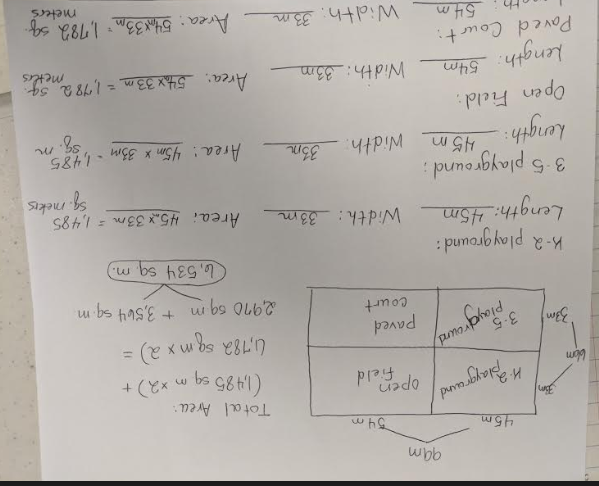 99m
45m 54m
33m
66m
33m
K-2
playground
open
field
3-5
playground
paved
court
Total Area:
(1,485 sq m x 2) +
(1,782 sq m x 2) =
2,970 sq m + 3,564 sq m
6,534 sq. m.
K-2 playground:
Length: 45m Width: 33m Area: 45m x 33m = 1,485
sq. meters
3-5 playground:
Length: 45m Width: 33m Area: 45m x 33m = 1,485
sq. m
Open Field:
Length: 54m Width: 33m Area: 54m x 33m = 1,782 sq.
meters
Paved Court:
Length: 54m Width: 33m Area: 54m x 33m = 1,782 sq.
meters